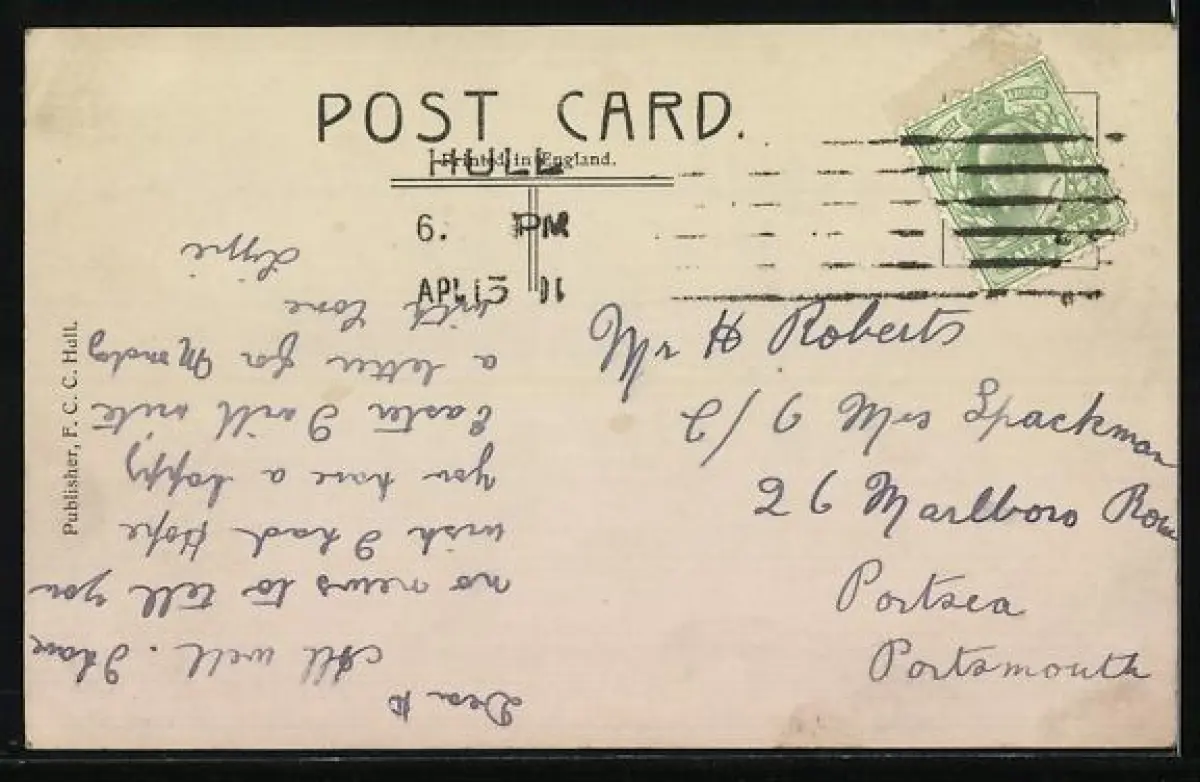 POST CARD.
Printed in England.
HULL
6. PM
AP 15 11
Mr H. Roberts
C/o Mrs Spackman
26 Marlboro Row
Portsea
Portsmouth
Publisher, F. C. C. Hull.
Dear H
All well. I have
no news to tell you
wish I had Hope
you have a happy
Easter I will write
a letter for Monday
with love
Lizzie